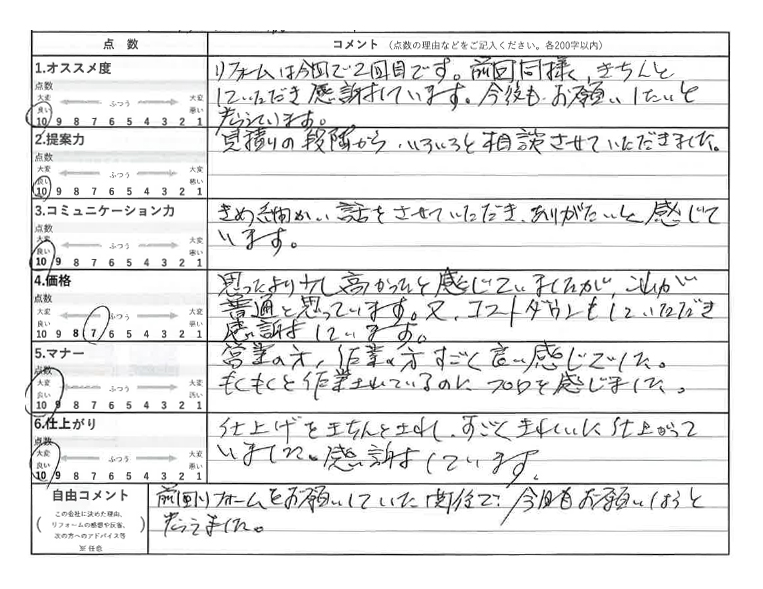 点 数
コメント（点数の理由などをご記入ください。各200字以内）
1.オススメ度
点数
大変 ふつう 大変
良い 悪い
10 9 8 7 6 5 4 3 2 1
リフォームは今回で2回目です。前回同様、きちんと
していただき感謝しています。今後も、お願いしたいと
考えています。
2.提案力
点数
大変 ふつう 大変
良い 悪い
10 9 8 7 6 5 4 3 2 1
見積りの段階から、いろいろと相談させていただきました。
3.コミュニケーション力
点数
大変 ふつう 大変
良い 悪い
10 9 8 7 6 5 4 3 2 1
きめ細かい話をさせていただき、ありがたいと感じて
います。
4.価格
点数
大変 ふつう 大変
良い 悪い
10 9 8 7 6 5 4 3 2 1
思ったより少し高かったと感じていましたが、これが
普通と思っています。又、コストダウンもしていただき
感謝しています。
5.マナー
点数
大変 ふつう 大変
良い 悪い
10 9 8 7 6 5 4 3 2 1
営業の方、作業の方すごく良い感じでした。
もくもくと作業されているのに、プロを感じました。
6.仕上がり
点数
大変 ふつう 大変
良い 悪い
10 9 8 7 6 5 4 3 2 1
仕上げをきちんとされ、すごくきれいに仕上がって
いました。感謝しています。
自由コメント
（この会社に決めた理由、
リフォームの感想や反省、
次の方へのアドバイス等）
※ 任意
前回リフォームをお願いしていた関係で、今回もお願いしようと
考えました。